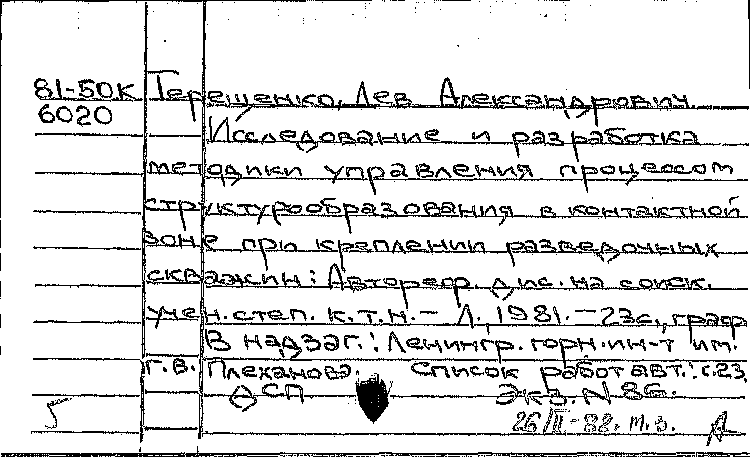 81-50К Терещенко, Лев Александрович.
6020 Исследование и разработка
методики управления процессом
структурообразования в контактной
зоне при креплении разведочных
скважин: Автореф. дис. на соиск.
учен. степ. к.т.н. – Л., 1981. – 23с., граф
В надзаг.: Ленингр. горн. ин-т им.
Г.В. Плеханова. Список работ авт.: с.23.
ДСП Экз. N 86.
5 26/II-82. т.з.